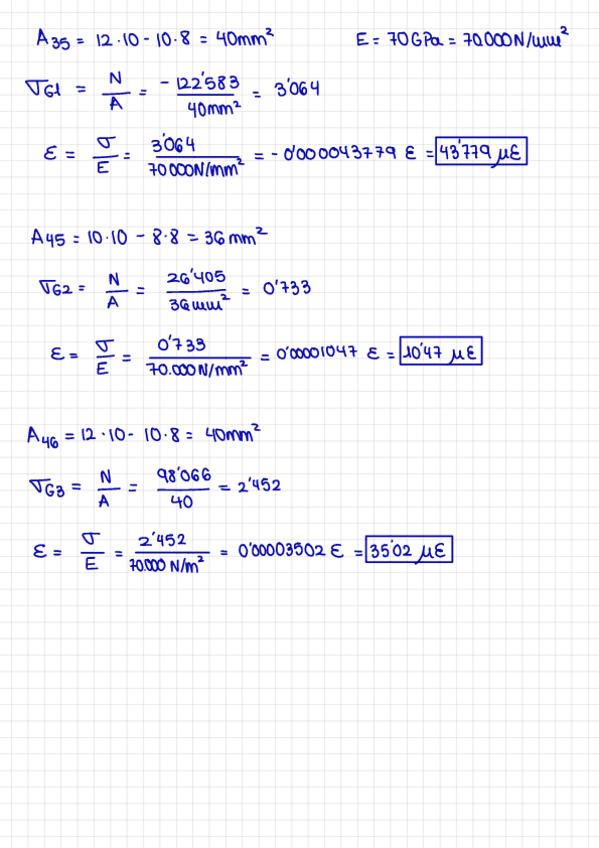 A35 = 12·10 - 10·8 = 40mm² E = 70GPa = 70.000N/mm²
σG1 = N/A = -122'583/40mm² = 3'064
ε = σ/E = 3'064/70000N/mm² = - 0'0000043779 ε = 43'779 με
A45 = 10·10 - 8·8 = 36mm²
σG2 = N/A = 26'405/36mm² = 0'733
ε = σ/E = 0'733/70.000N/mm² = 0'00001047 ε = 10'47 με
A46 = 12·10 - 10·8 = 40mm²
σG3 = N/A = 98'066/40 = 2'452
ε = σ/E = 2'452/70.000 N/m² = 0'00003502 ε = 35'02 με